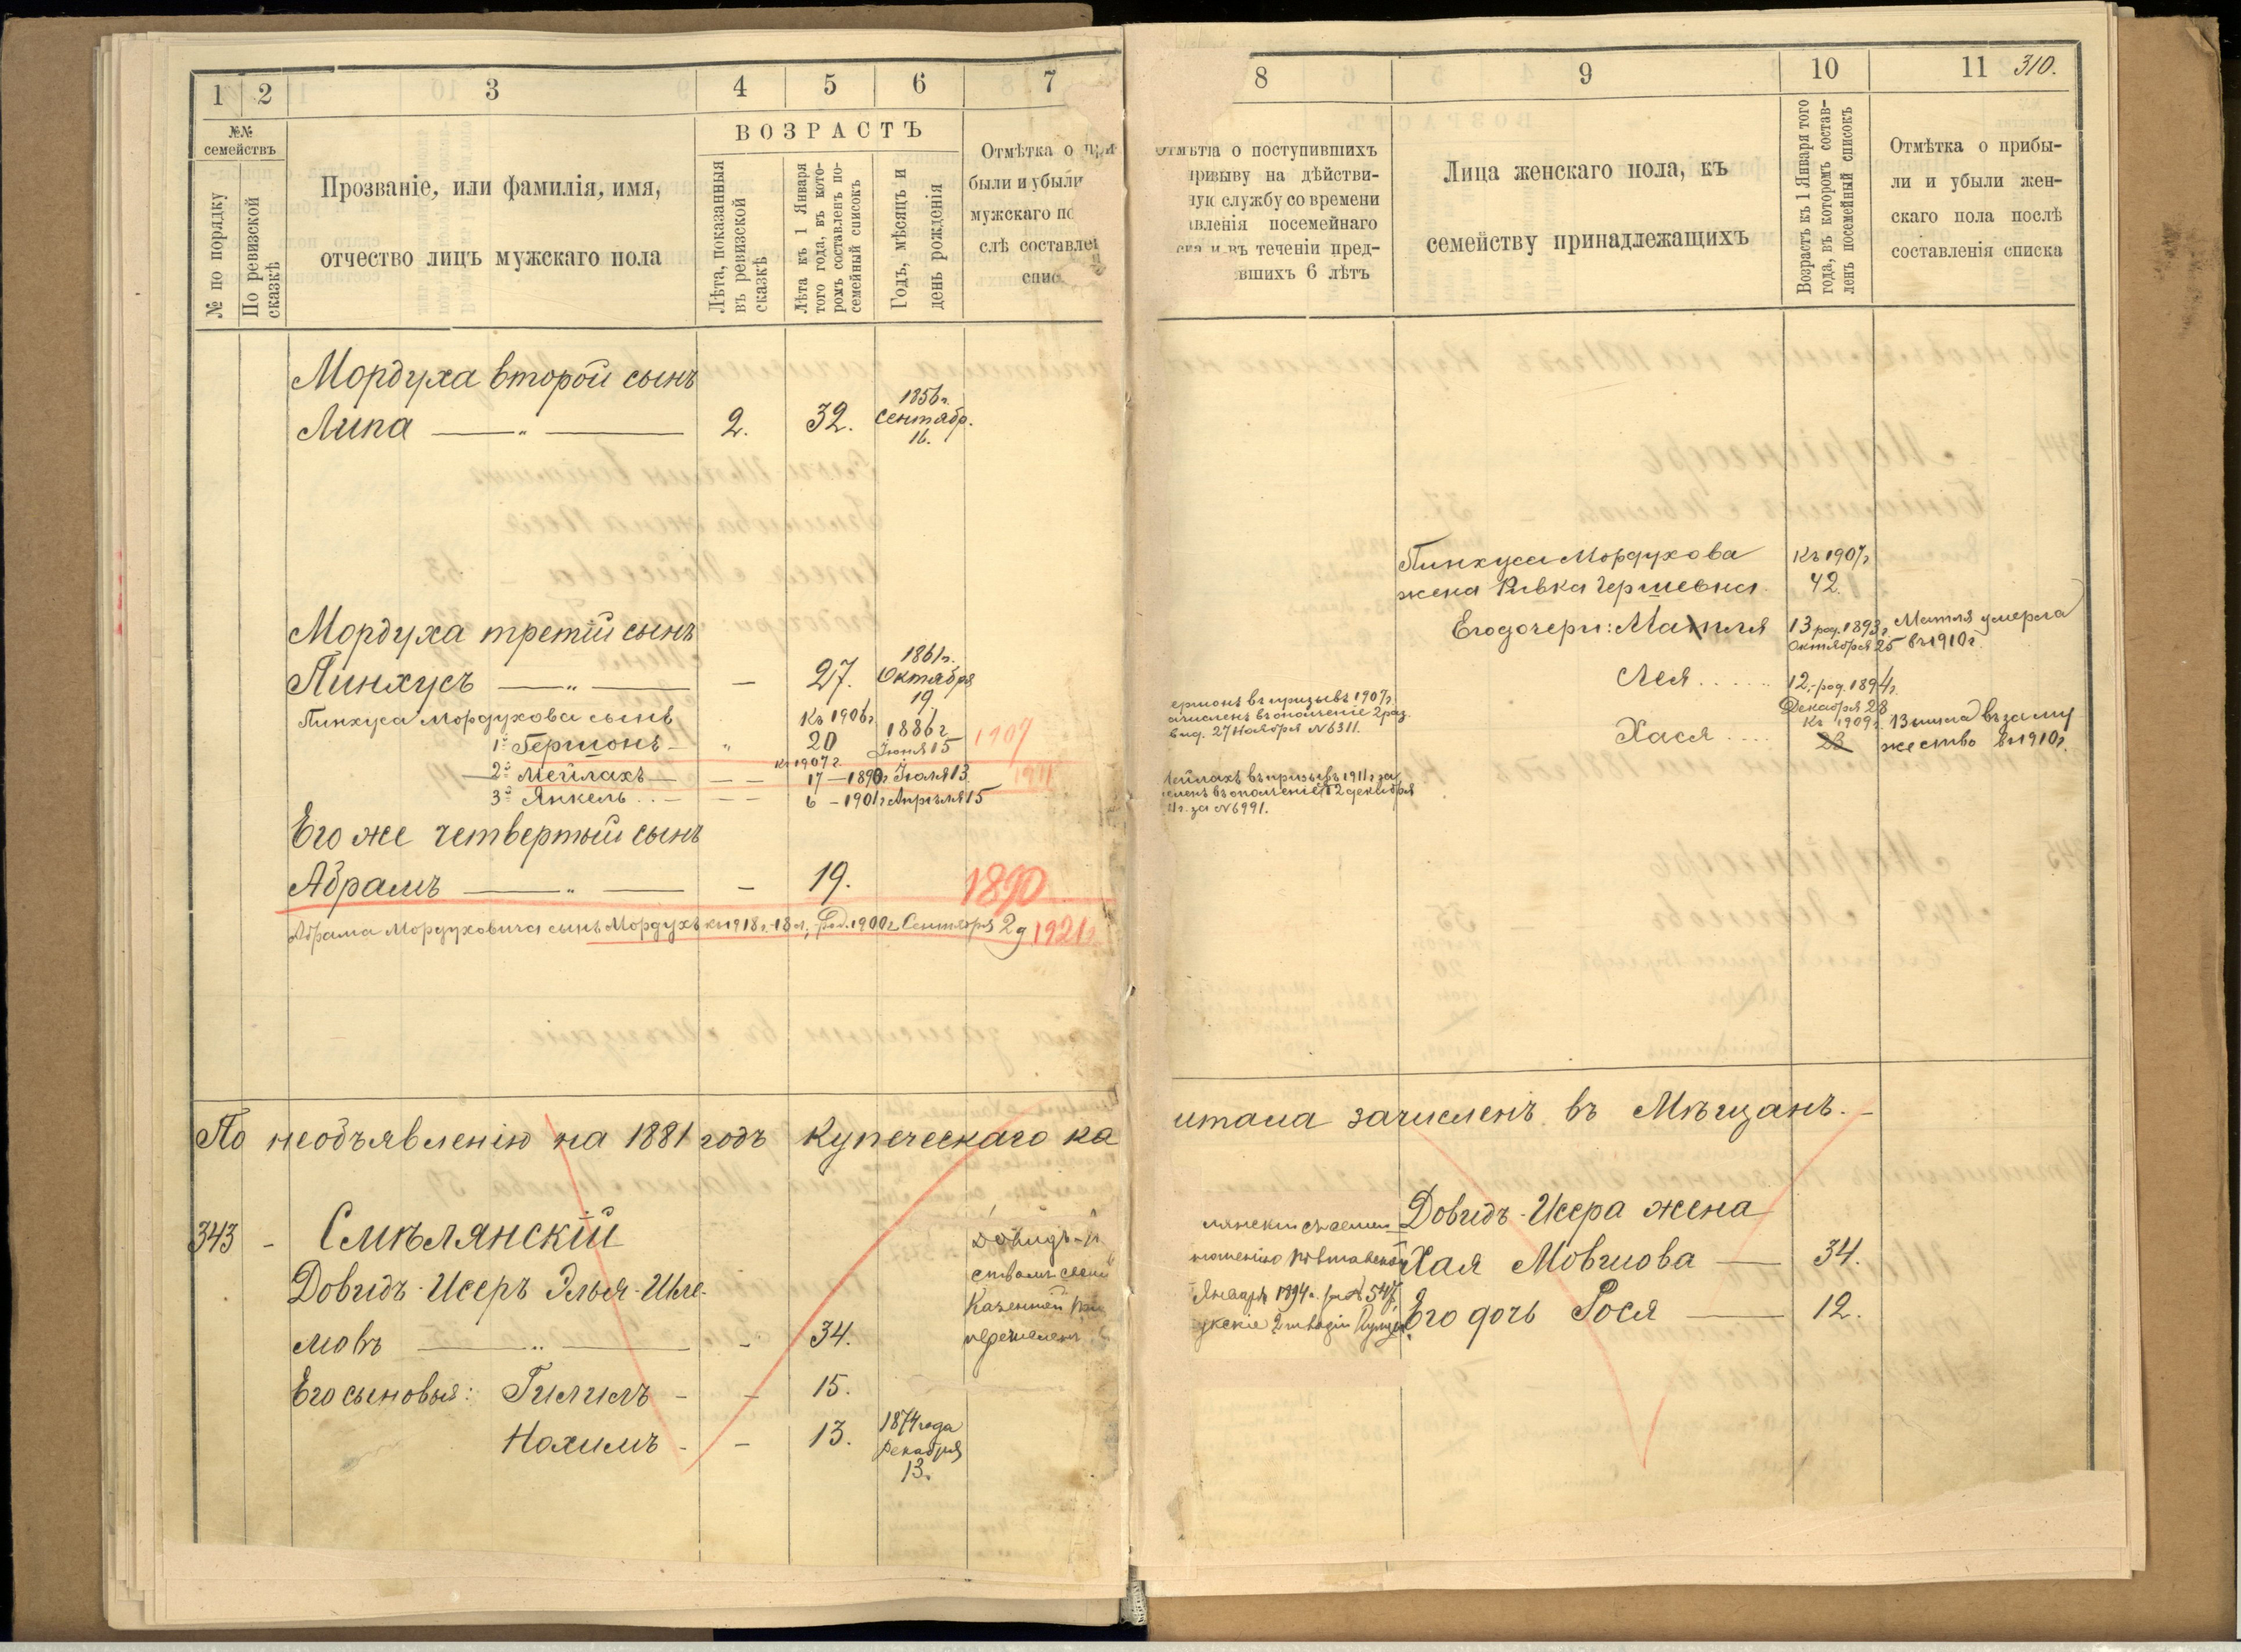 1 2 3 4 5 6 7
№№ семействъ
№ по порядку
По ревизской сказкѣ
Прозваніе, или фамилія, имя,
отчество лицъ мужскаго пола
ВОЗРАСТЪ
Лѣта, показанныя
въ ревизской
сказкѣ
Лѣта къ 1 Января
того года, въ кото-
ромъ составленъ по-
семейный списокъ
Годъ, мѣсяцъ и
день рожденія
Отмѣтка о при
были и убыли
мужскаго по
слѣ составлен
спис
Мордуха второй сынъ
Липа 2. 32. 1856г.
Сентябр.
16.
Мордуха третій сынъ
Пинхусъ — 27. 1861г.
Октября
19
Пинхуса Мордухова сынъ Къ 1906г
1й Гершонъ " 20 1886г Іюня 15 1907
къ 1907г.
2й Мейлахъ 17 — 1890г Іюля 13 1911
3й Янкель 6 — 1901г Апрѣля 15
Его же четвертый сынъ
Абрамъ — 19. 1890
Абрама Мордуховича сынъ Мордухъ къ 1918г. 18 л., род. 1900г. Сентября 29 1921г.
По необъявленію на 1881 годъ купеческаго ка
343 - Смѣлянскій
Довидъ-Исеръ Элья-Шле-
мовъ - 34.
Довидъ-И
ствомъ
Казенной
перечислен
Его сыновья: Гилилъ - - 15.
Нахимъ - - 13. 1874 года
Декабря
13.
8 9 10 11 310.
Отмѣтка о поступившихъ
призыву на дѣйстви-
ную службу со времени
вленія посемейнаго
ска и въ теченіи пред-
вшихъ 6 лѣтъ
Лица женскаго пола, къ
семейству принадлежащихъ
Возрастъ къ 1 Января того
года, въ которомъ состав-
ленъ посемейный списокъ
Отмѣтка о прибы-
ли и убыли жен-
скаго пола послѣ
составленія списка
Пинхуса Мордухова Къ 1907г
жена Ривка Гершевна. 42.
Его дочери: Матля 13 род. 1893г. Матля умерла
Октября 25 въ 1910г.
Лея 12, род. 1894г.
Декабря 28
Хася Къ 1909г. въ заму
23 жество въ 1910г.
ершонъ въ призывъ 1907г.
ачисленъ въ ополченіе 2 раз.
вид. 27 Ноября №6311.
Мейлахъ въ призывъ 1911г. за
сленъ въ ополченіе 12 декабря
11г. за №6991.
итала зачисленъ въ Мѣщанъ.-
лянскій
Января 1894г. за № 547,
Довидъ-Исера жена
Хая Мовшова — 34.
Его дочь Рося — 12.